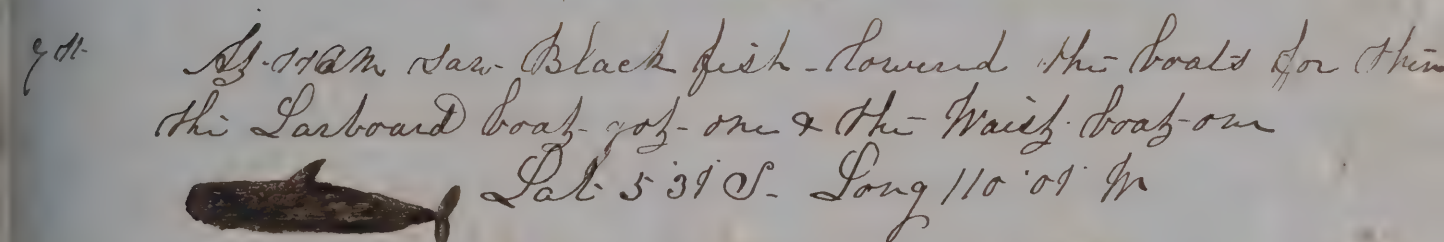 7th At 11 AM saw Black fish - lowered the boats for them
the Larboard boat got one & the Waist boat one
Lat 5 31 S. Long 110 01 W